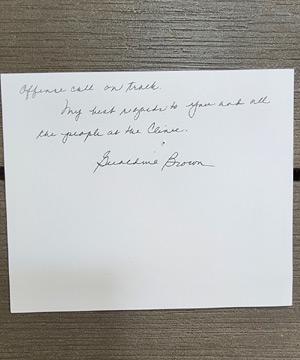 Offense call on track.
My best regards to you and all
the people at the Clinic.
Geraldine Brown